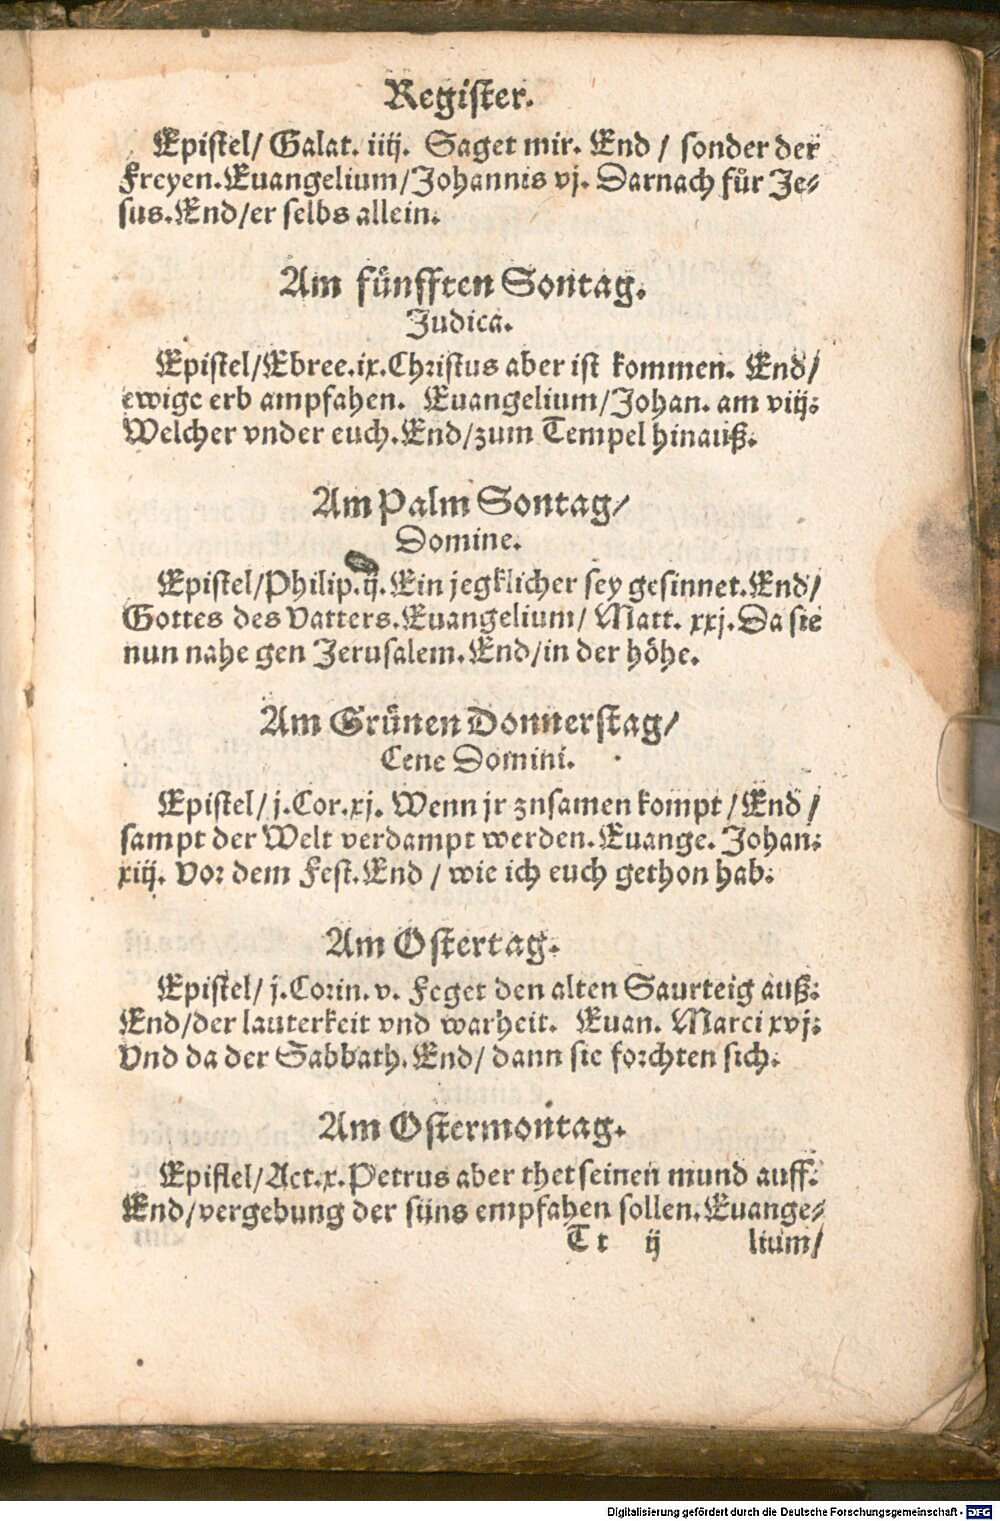 Register.
Epistel/ Galat. iiij. Saget mir. End / sonder der
Freyen. Euangelium/Johannis vj. Darnach für Je-
sus. End/er selbs allein.
Am fünfften Sontag.
Judica.
Epistel/Ebree. ix. Christus aber ist kommen. End/
ewige erb ampfahen. Euangelium/Johan. am viij.
Welcher vnder euch. End/zum Tempel hinauß.
Am Palm Sontag/
Domine.
Epistel/Philip. ij. Ein jegklicher sey gesinnet. End/
Gottes des Vatters. Euangelium/ Matt. xxj. Da sie
nun nahe gen Jerusalem. End/in der höhe.
Am Grünen Donnerstag/
Cene Domini.
Epistel/ j. Cor. xj. Wenn jr znsamen kompt / End /
sampt der Welt verdampt werden. Euange. Johan.
xiij. Vor dem Fest. End / wie ich euch gethon hab.
Am Ostertag.
Epistel/ j. Corin. v. Feget den alten Saurteig auß.
End/der lauterkeit vnd warheit. Euan. Marci xvj.
Vnd da der Sabbath. End/ dann sie forchten sich.
Am Ostermontag.
Epistel/Act. x. Petrus aber thet seinen mund auff.
End/vergebung der süns empfahen sollen. Euange-
T t ij lium/
Digitalisierung gefördert durch die Deutsche Forschungsgemeinschaft - DFG